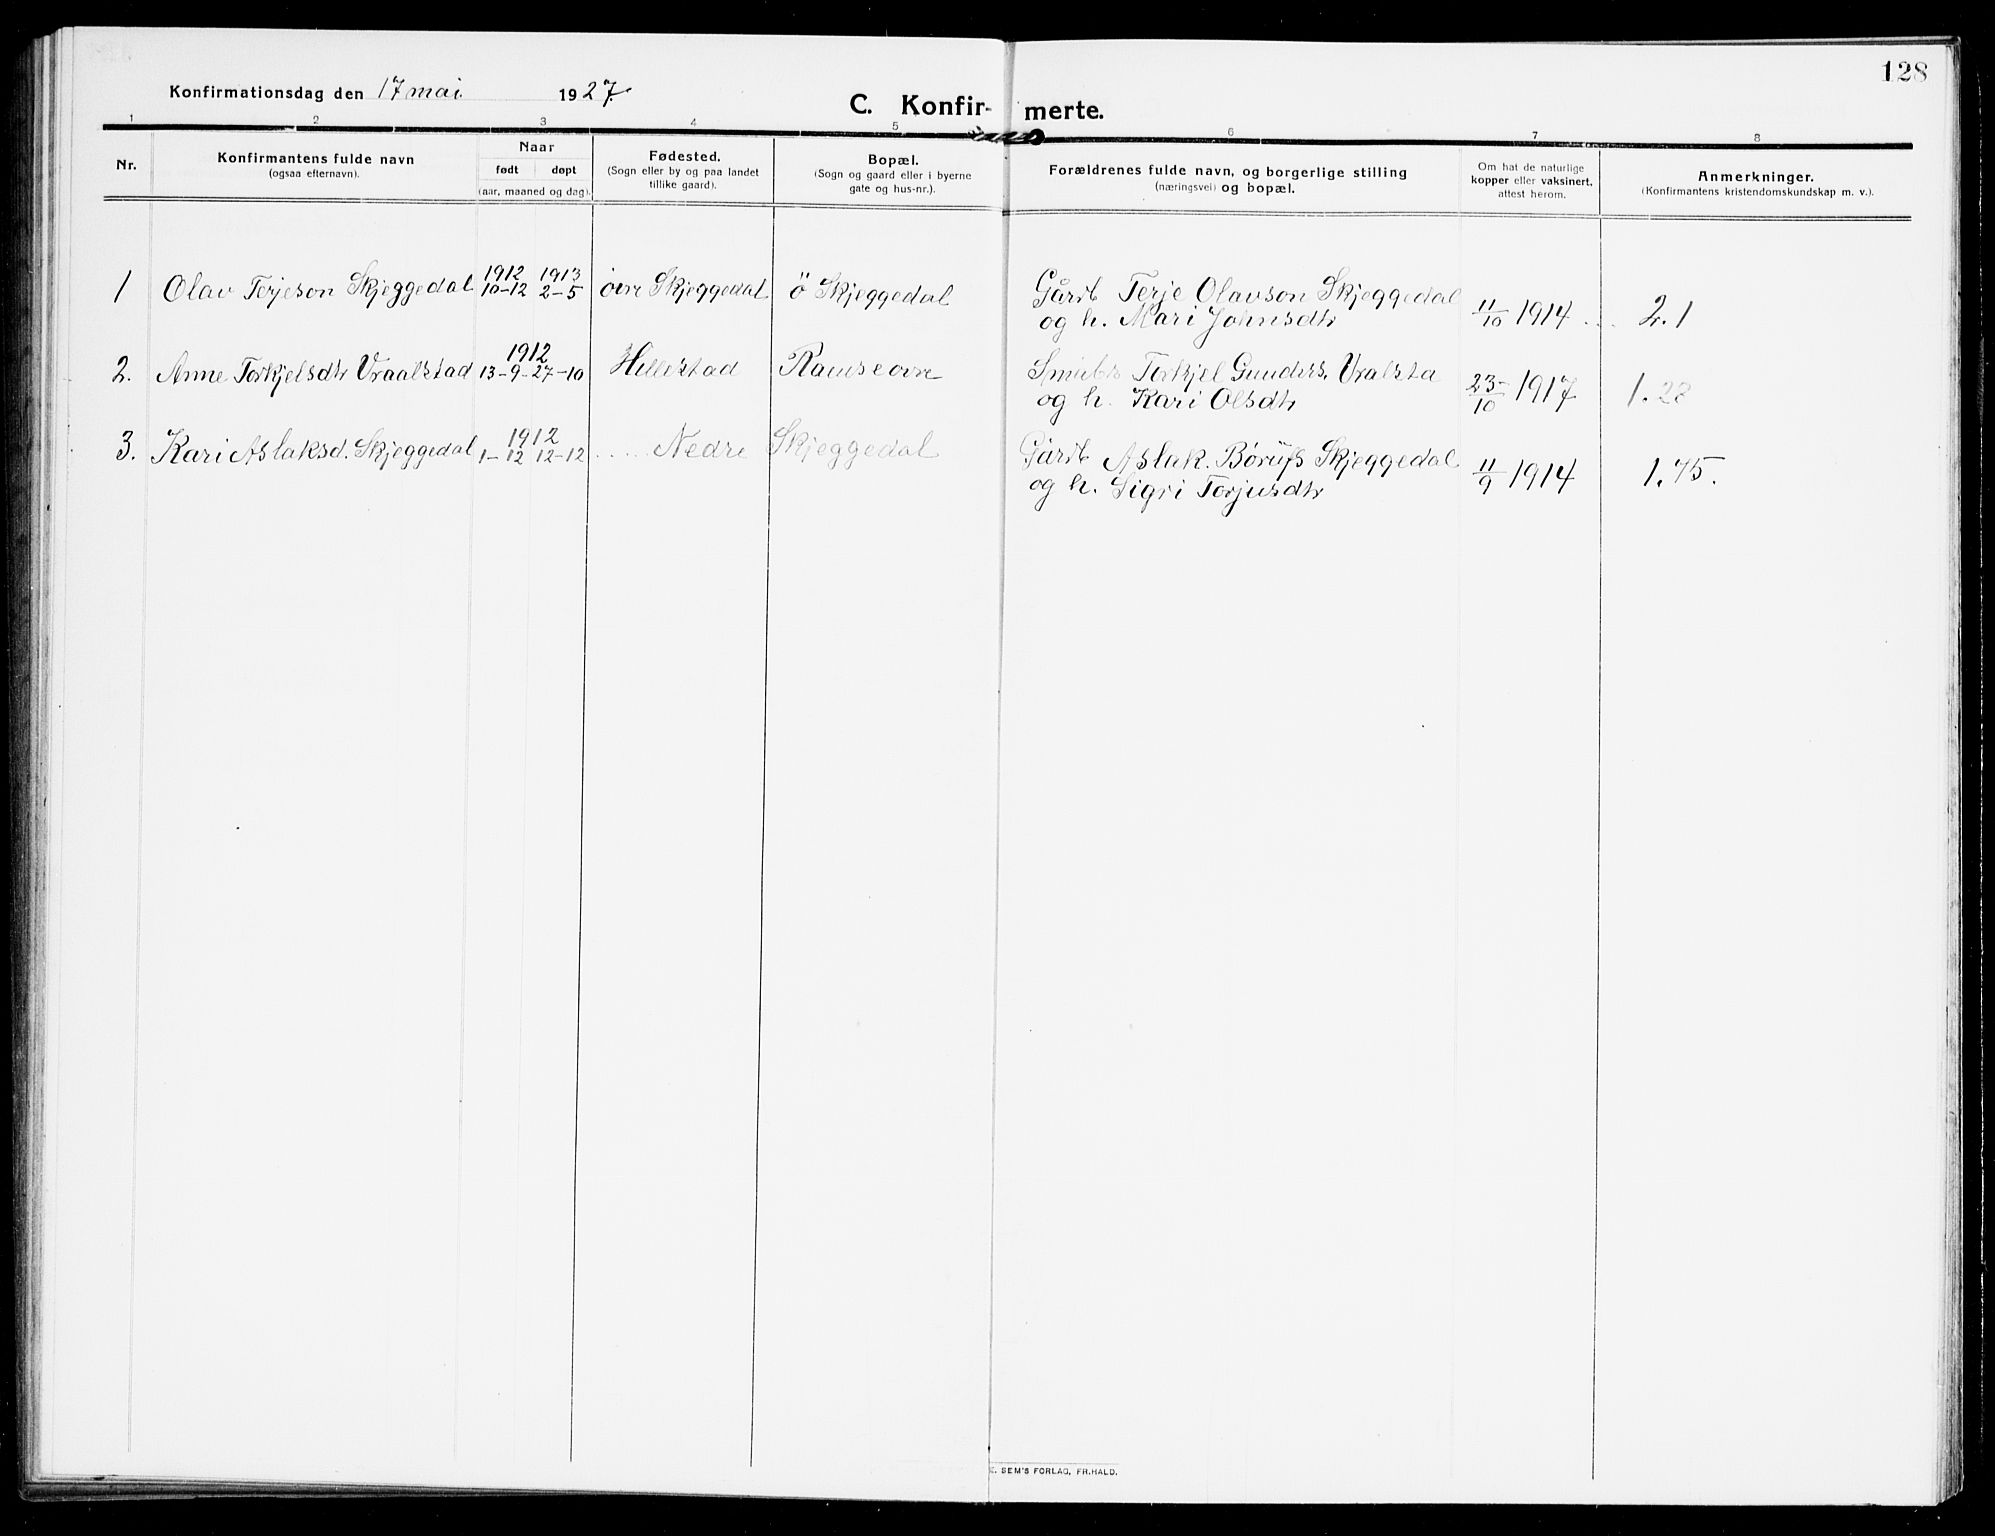 128
Konfirmationsdag den 17 mai 1927.
C. Konfir- merte.
1 2 3 4 5 6 7 8
Nr.
Konfirmantens fulde navn
(ogsaa efternavn).
Naar
født døpt
(aar, maaned og dag).
Fødested.
(Sogn eller by og paa landet
tillike gaard).
Bopæl.
(Sogn og gaard eller i byerne
gate og hus-nr.).
Forældrenes fulde navn, og borgerlige stilling
(næringsvei) og bopæl.
Om hat de naturlige
kopper eller vaksinert,
attest herom.
Anmerkninger.
(Konfirmantens kristendomskundskap m. v.).
1 Olav Terjeson Skjeggedal 1912 10-12 1913 2-5 övre Skjeggedal ö Skjeggedal Gårdb Terje Olavson Skjeggedal
og h. Mari Johnsdtr 11/10 1914 .... 2.1
2. Anne Torkjelsdtr Vraalstad 1912 13-9-27-10 Hillestad Smabr Torkjel Gunders. Vralsta
og h. Kari Olsdtr 23/10 1917 1.28
3. Kari Aslaksd. Skjeggedal 1912 1-12 12-12 ..... Nedre Skjeggedal Gårdb Aslak Børufs Skjeggedal
og h. Sigri Torjusdtr 11/9 1914 1.75.
E. SEM'S FORLAG, FR.HALD.